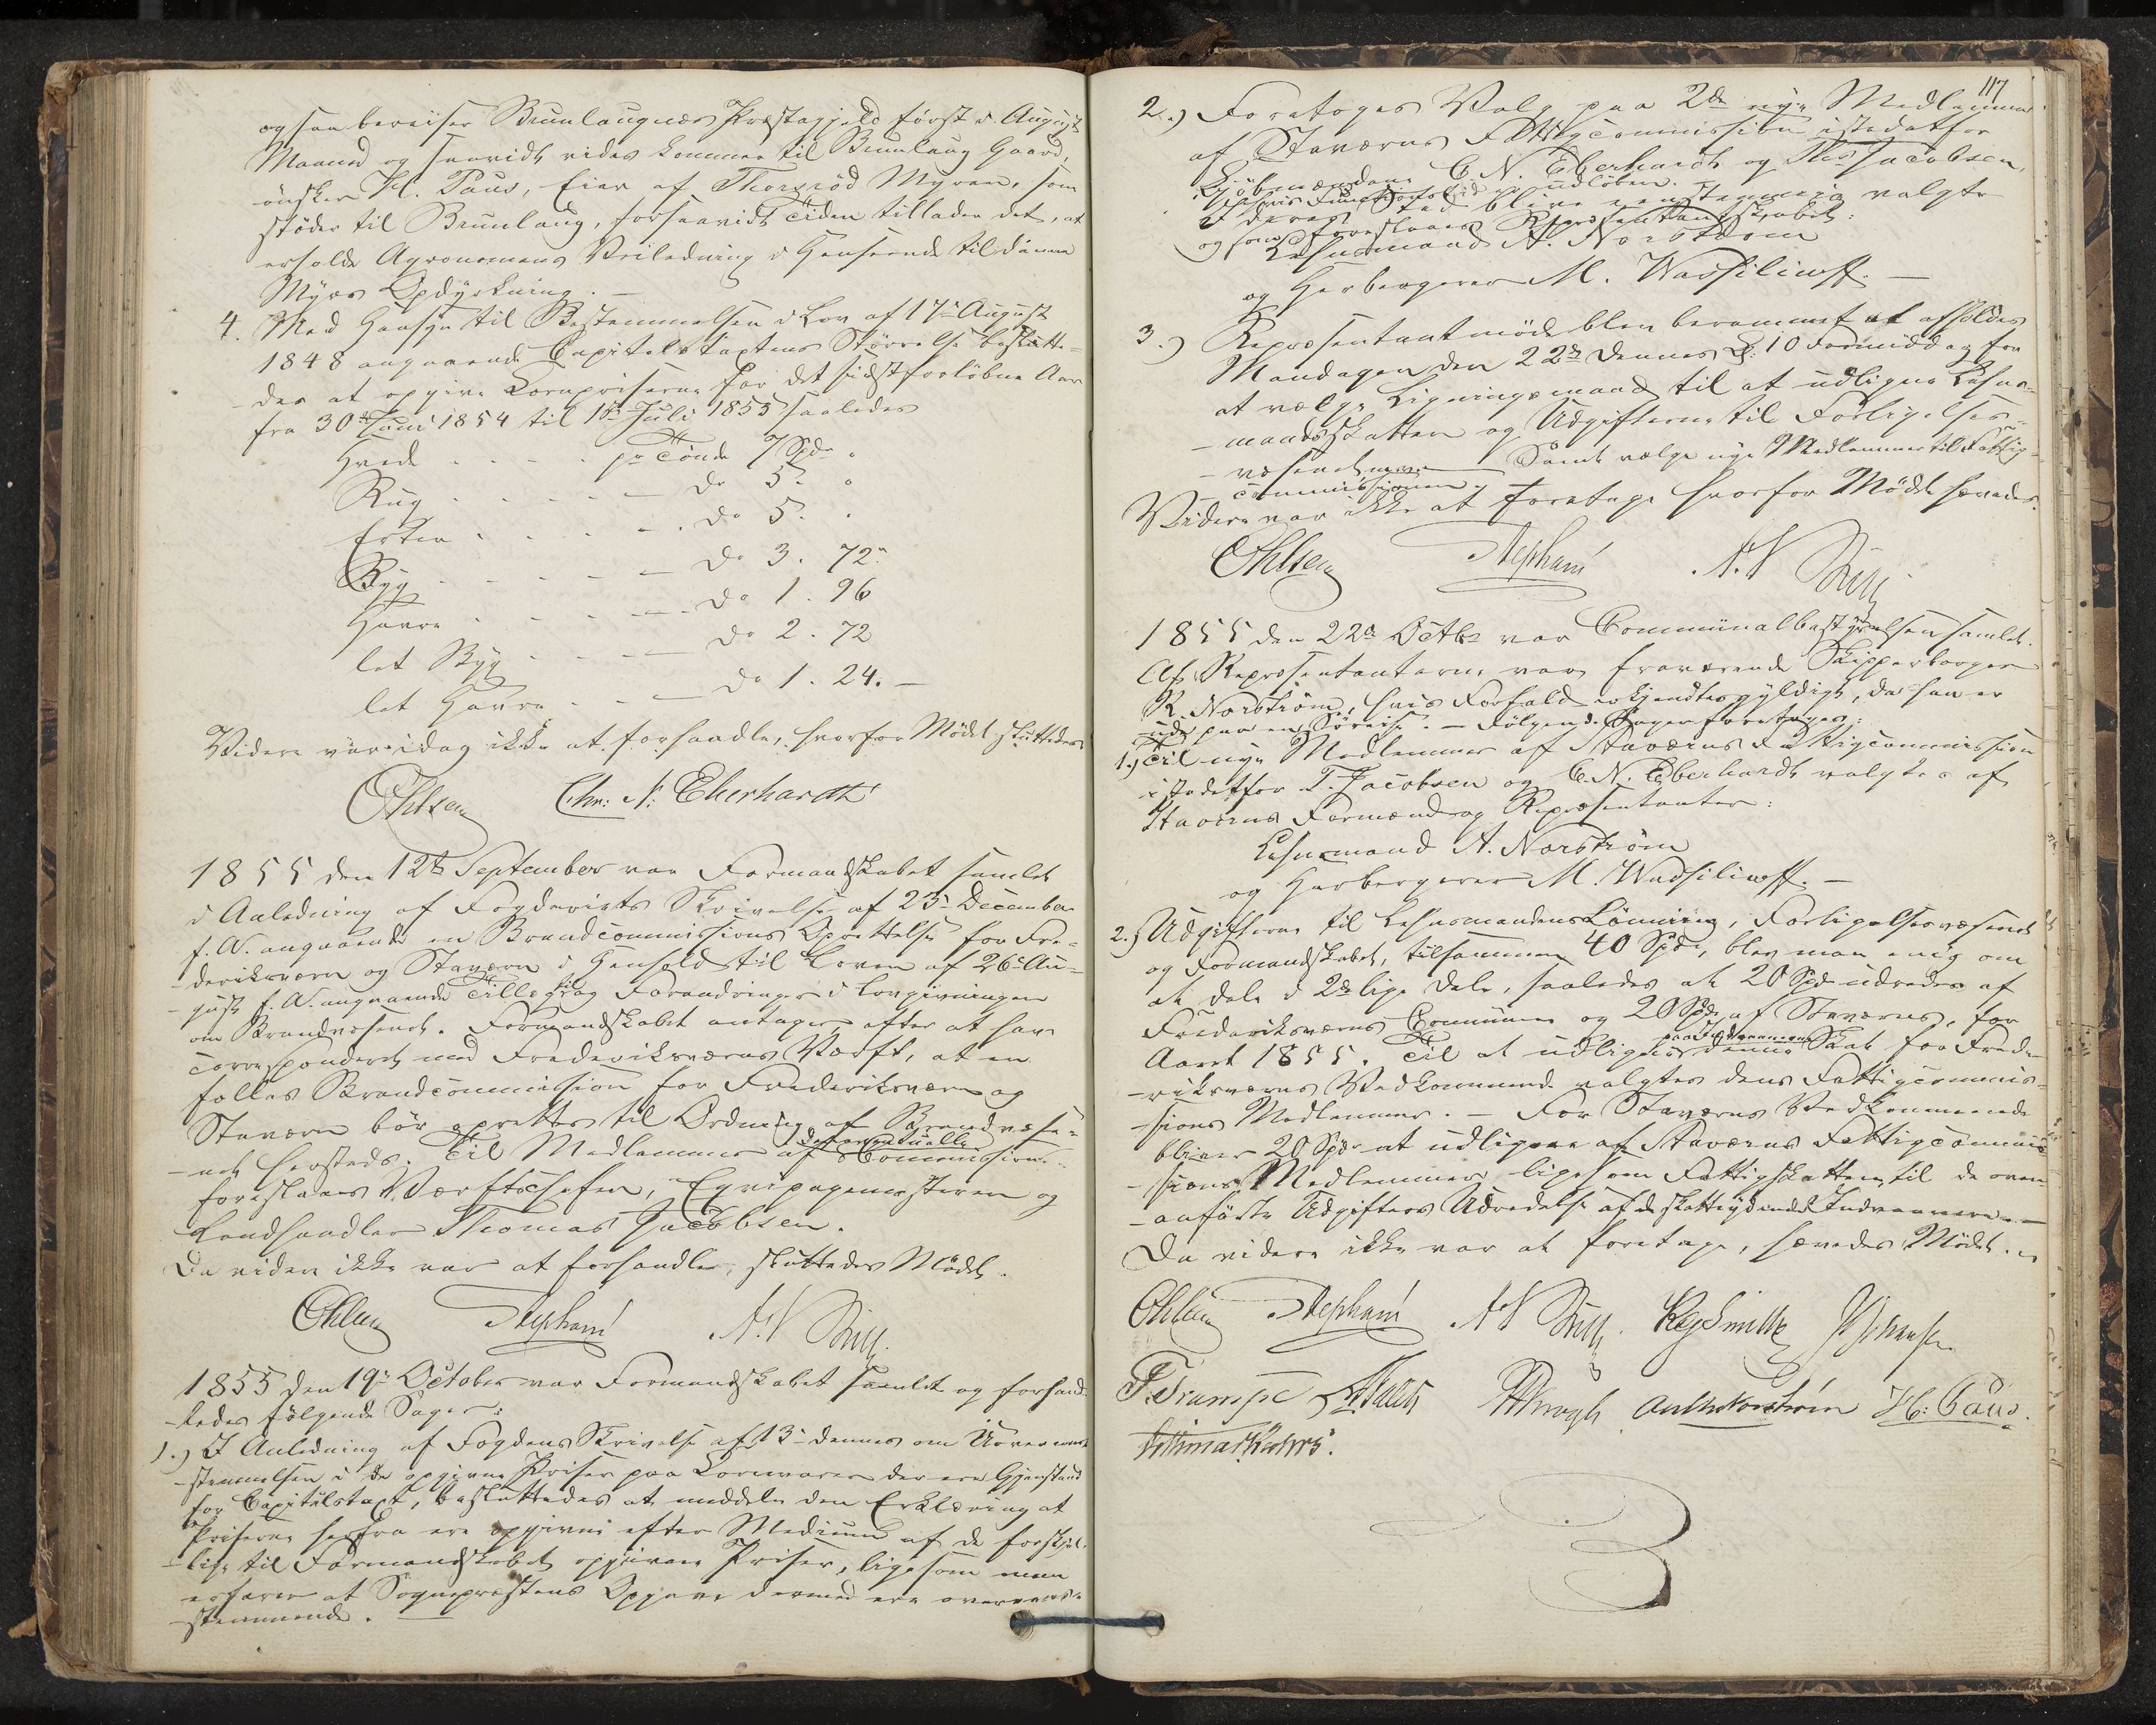 og saa bereiser Brunlaugnæs Præstegjeld først i August
Maaned og saavidt vides kommer til Brunlaug Gaard,
ønsker H. Paus, Eier af Thorsrød Myren, som
støder til Brunlaug, forsaavidt Tiden tillader det, at
erholde Agronomens Veiledning i Henseende til denne
Myrs Opdyrkning. —
4. Med Hensyn til Bestemmelsen i Lov af 17de August
1848 angaaende Capitelstaxtens Størrelse beslutte-
des at opgive Kornpriserne for det sidstforløbne Aar
fra 30te Juni 1854 til 1ste Juli 1855 saaledes
Hvede . . . . pr Tønde 7 Spd.
Rug . . . . . — do 5. "
Erter . . . . — do 5. "
Byg . . . . . — do 3. 72.
Havre . . . . — do 1. 96
let Byg . . . — do 2. 72
let Havre . . — do 1. 24. —
Videre var idag ikke at forhandle, hvorfor Mødet sluttedes
Ohlsen Chr: N: Eberhardt
1855 den 12te September var Formandskabet samlet
i Anledning af Fogderiets Skrivelse af 25de December
f. A. angaaende en Brandcommissions Oprettelse for Fre-
deriksværn og Staværn i Henhold til Loven af 26de Au-
gust f. A. angaaende Tillæg til og Forandringer i Lovgivningen
om Brandvæsenet. Formandskabet antager, efter at have
correspondert med Frederiksværns Værft, at en
fælles Brandcommission for Frederiksværn og
Staværn bør oprettes til Ordning af Brandvæse-
net hersteds. Til Medlemmer af den eventuelle Commission
foreslaaes Værftschefen, Eqvipagemesteren og
Landhandler Thomas Jacobsen.
Da videre ikke var at forhandle, sluttedes Mødet.
Ohlsen Stephani A. N.
1855 den 19de October var Formandskabet samlet og forhand-
ledes følgende Sager:
1.) I Anledning af Fogdens Skrivelse af 13de dennes om Uoverens-
stemmelsen i de opgivne Priser paa Kornvarer der ere Gjenstand
for Capitelstaxt, besluttedes at meddele den Erklæring at
Priserne herfra ere opgivne efter Medium af de forskjel-
lige til Formandskabet opgivne Priser, ligesom man
erfarer at Sognepræstens Opgave dermed ere overeens-
stemmende. —
117
2.) Foretoges Valg paa 2de nye Medlemmer
af Staværns Fattigcommission istedetfor
Kjøbmændene C. N. Eberhardt og Ths Jacobsen,
hvis Functionstid er udløben.
I deres Sted bleve eenstemmig valgte
og som foreslaaes Repræsentantskabet:
Lehnsmand A. Norstrøm
og Herbergerer M. Wassiliwff. —
3.) Repræsentantmøde blev berammet at afholdes
Mandagen den 22de dennes Kl: 10 Formiddag for
at vælge Ligningsmænd til at udligne Lehns-
mandsskatten og Udgifterne til Forligelses-
væsenet samt vælge nye Medlemmer til Fattig-
commissionen.
Videre var ikke at foretage hvorfor Mødet hævedes.
Ohlsen Stephani A. N.
1855 den 22de Octbr var Communalbestyrelsen samlet.
Af Repræsentanterne vare fraværende Skipperborger
R. Norstrøm, hvis Forfald erkjendtes gyldigt, da han er
ude paa en Søreise. — Følgende Sager foretoges:
1.) Til nye Medlemmer af Staværns Fattigcommission
istedetfor T. Jacobsen og C. N. Eberhardt valgtes af
Staværns Formænd og Repræsentanter:
Lehnsmand A. Norstrøm
og Herbergerer M. Wassiliwff. —
2.) Udgifterne til Lehnsmandens Lønning, Forligelsesvæsenet
og Formandskabet, tilsammen 40 Spd, blev man enig om
at dele i 2de lige Dele, saaledes at 20 Spd udredes af
Frederiksværns Commune og 20 Spd af Staværns, for
Aaret 1855. Til at udligne denne Skat paa Indvaanerne for Frede-
riksværns Vedkommende valgtes dens Fattigcommis-
sions Medlemmer. — For Staværns Vedkommende
bliver 20 Spd at udligne af Staværns Fattigcommis-
sions Medlemmer ligesom Fattigskatten, til de oven-
anførte Udgifters Udredelse af de skatteydende Indvaanere. —
Da videre ikke var at foretage, hævedes Mødet.
Ohlsen Stephani A. N. Hansen
F. Trampe Krogh Anth Norstrøm H: Paus.